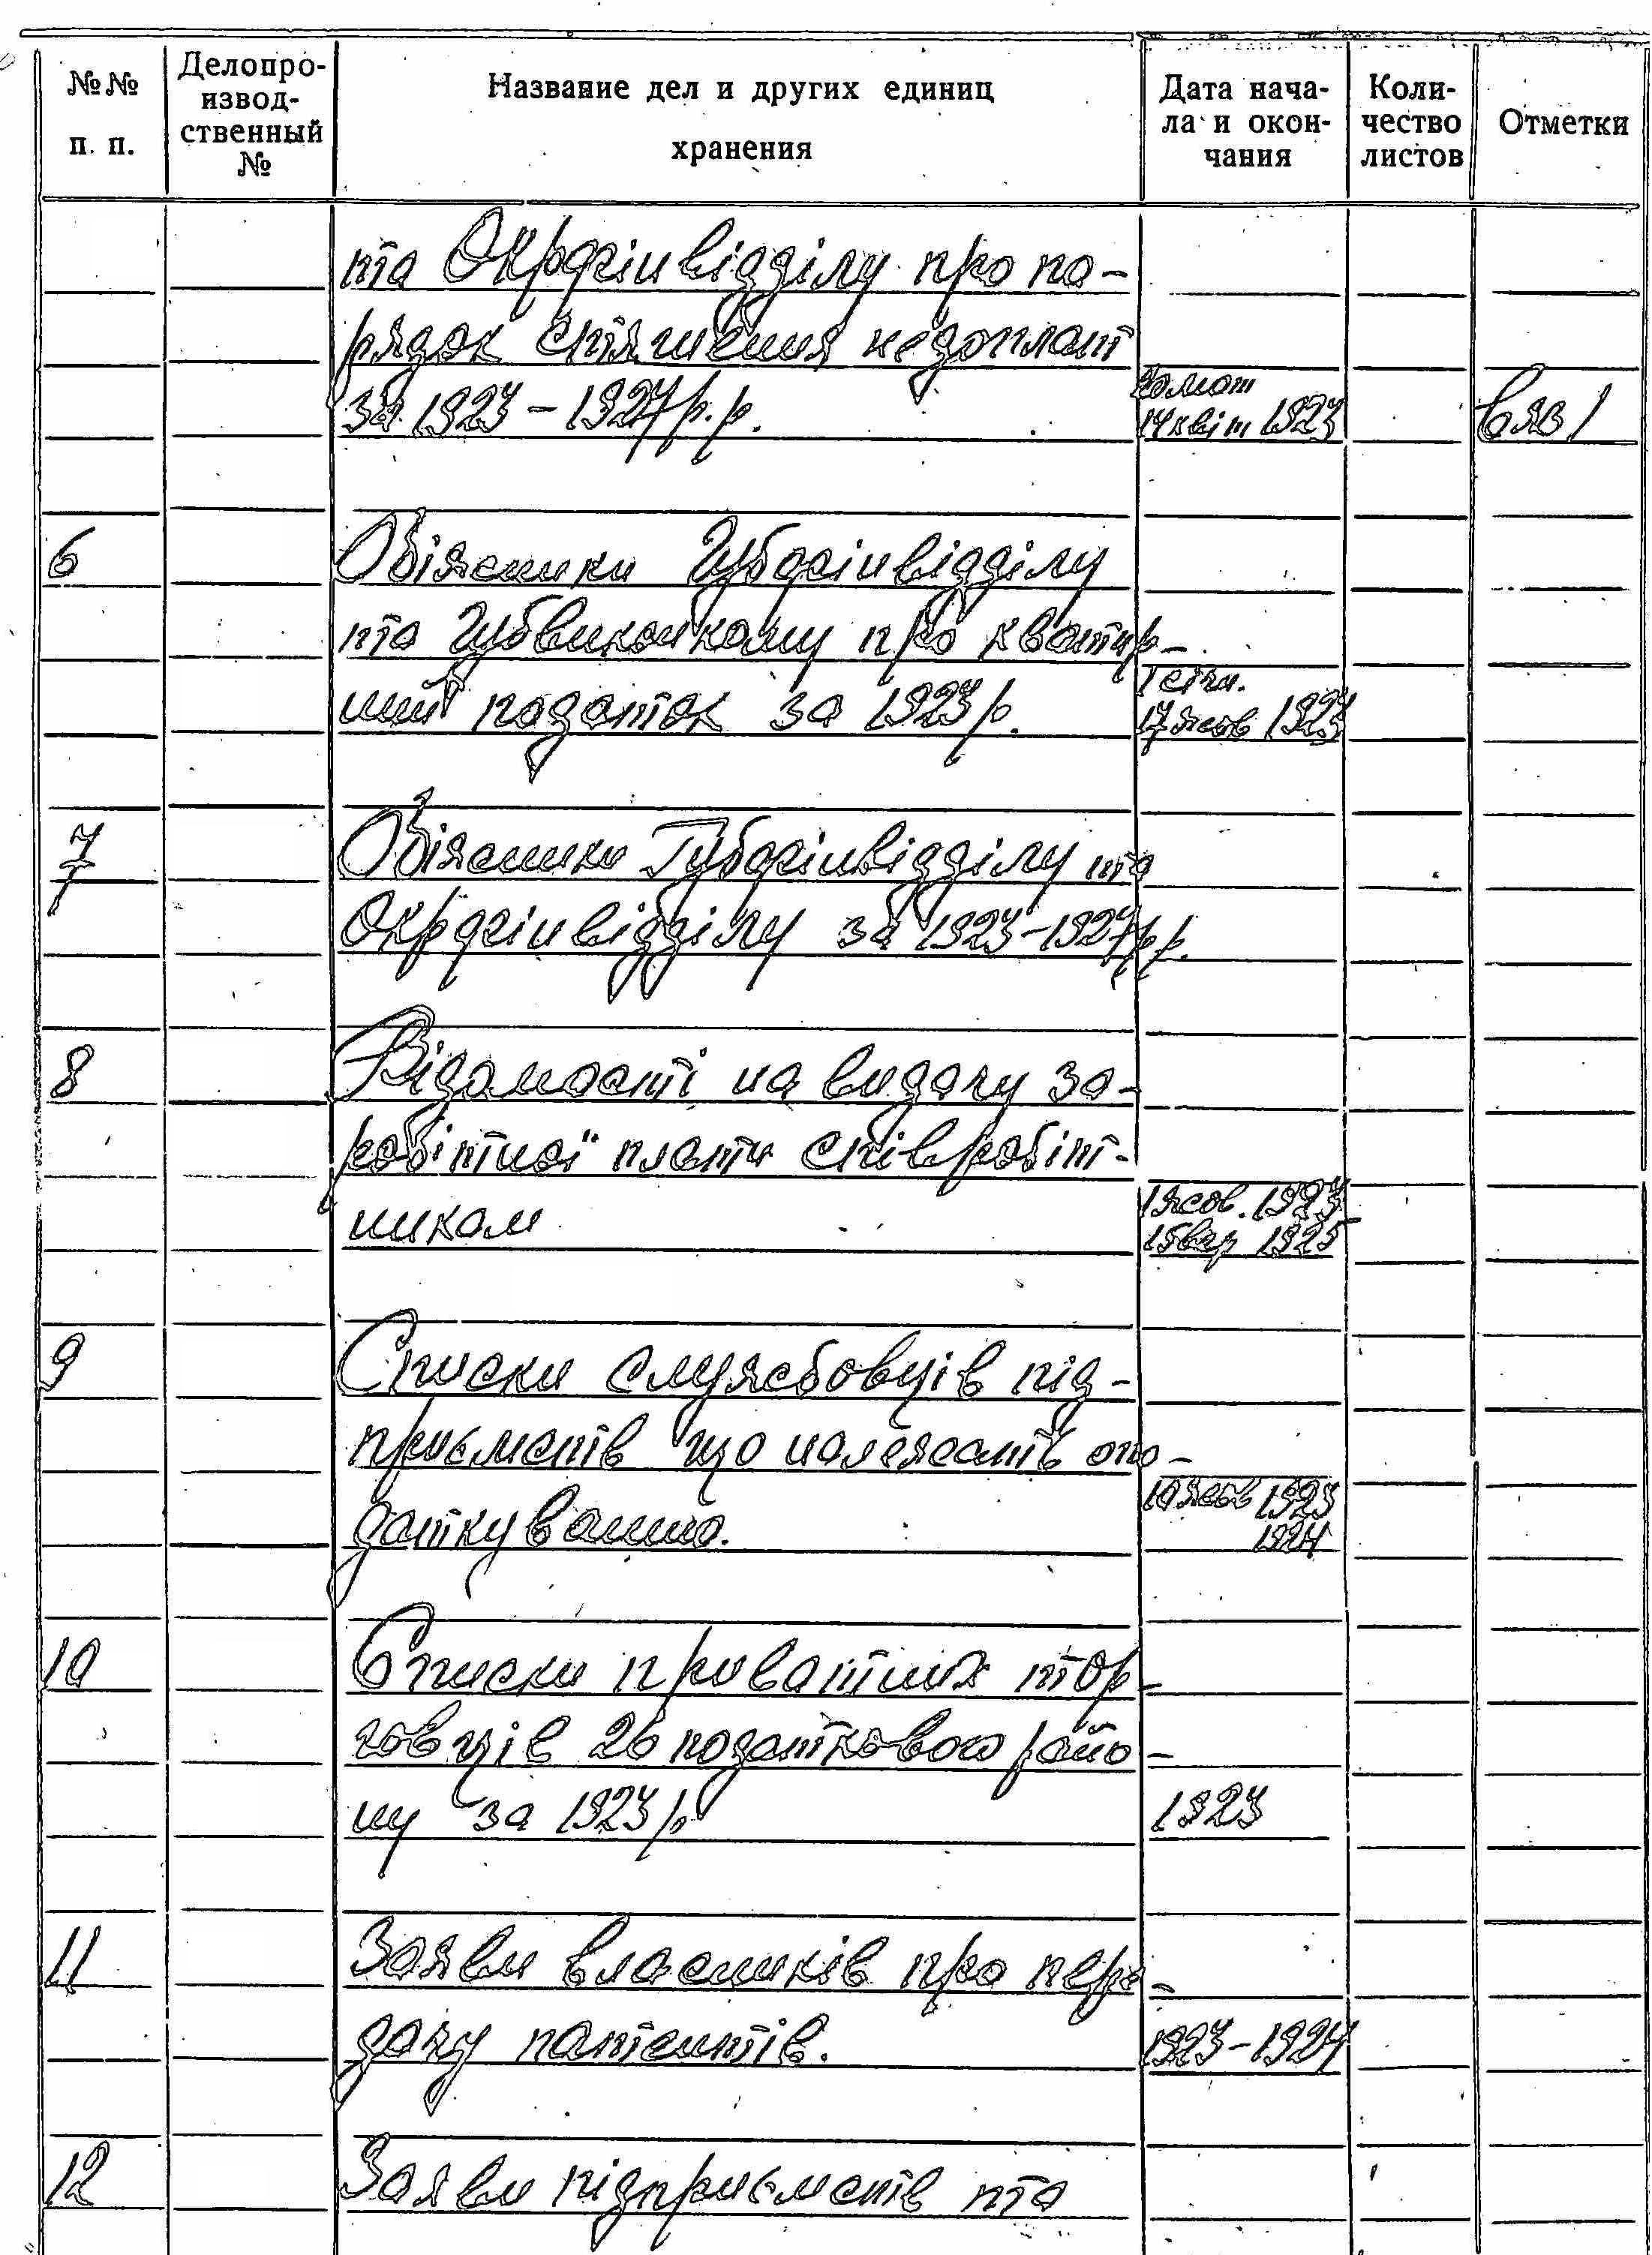 №№ п. п.
Делопро-
извод-
ственный
№
Название дел и других единиц
хранения
Дата нача-
ла и окон-
чания
Коли-
чество
листов
Отметки
та Окрфінвідділу про по-
рядок стягнення недоплат
за 1923-1927 р.р.
14 квіт 1923
вяз 1
6
Обіжники Губфінвідділу
та Губвиконкому про квартир-
ний податок за 1923 р.
1 січн.
17 жов 1923
7
Обіжники Губфінвідділу та
Окрфінвідділу за 1923-1927 р.р.
8
Відомості на видачу за-
робітної плати співробіт-
никам
1 жов. 1923
15 вер 1925
9
Списки службовців під-
приємств що належать опо-
даткуванню.
10 жов 1923
1924
10
Списки приватних тор-
говців 26 податкового райо-
ну за 1923 р
1923
11
Заяви власників про пере-
дачу патентів.
1923-1924
12
Заяви підприємств та